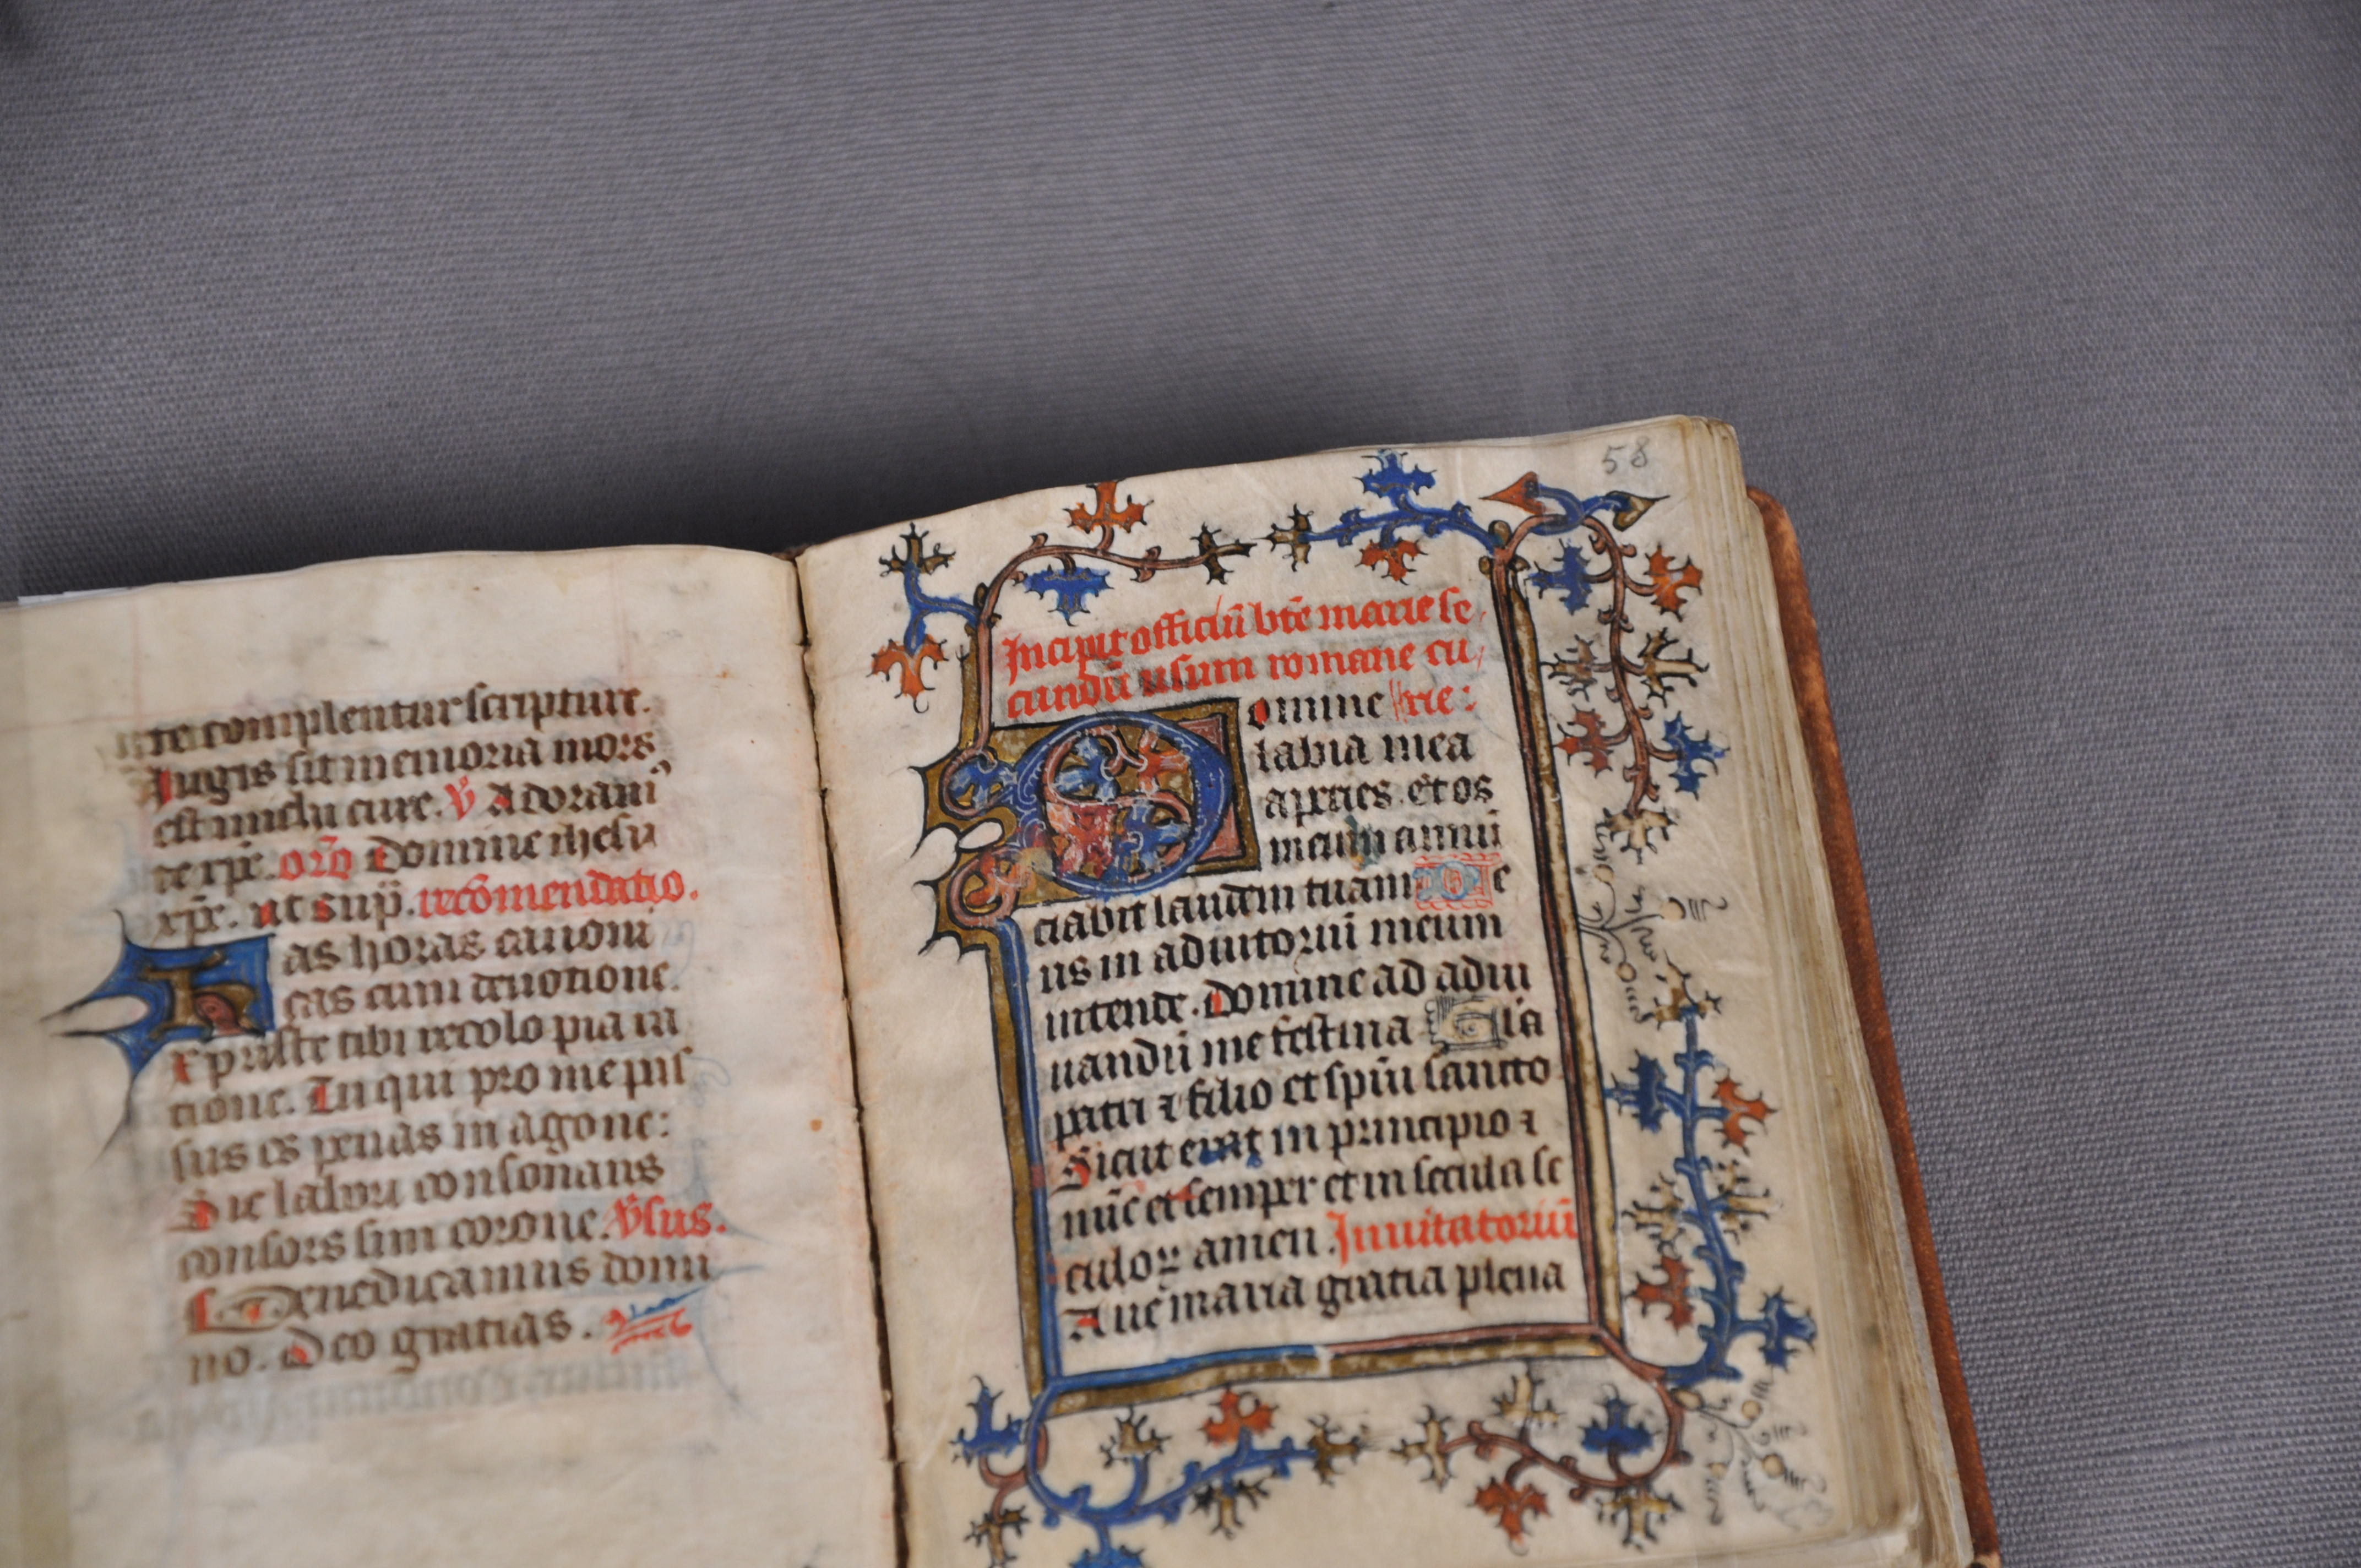 te complentur scripture.
Iugis sit memoria mors
est michi cure. V Adoram⁹
te xp̄e. orō Domine ihesu
xp̄e. ut sup̄. recōmendatio.
Has horas canoni
cas cum deuotione.
xpriste tibi recolo pia ra
tione. Tu qui pro me pas
sus es penas in agone:
Sic labori consonans
consors sim corone. V̄sus.
Benedicamus domi
no. Deo gratias.
58
Incipit officiū btē marie se
cundū usum romane cu
Domine rie:
labia mea
aperies. et os
meum annū
ciabit laudem tuam De
us in adiutoriū meum
intende. Domine ad adiu
uandū me festina Gl̄a
patri ⁊ filio et sp̄iu sancto
Sicut erat in principio ⁊
nūc et semper et in secula se
culoꝝ amen. Inuitatoriū
Aue maria gratia plena